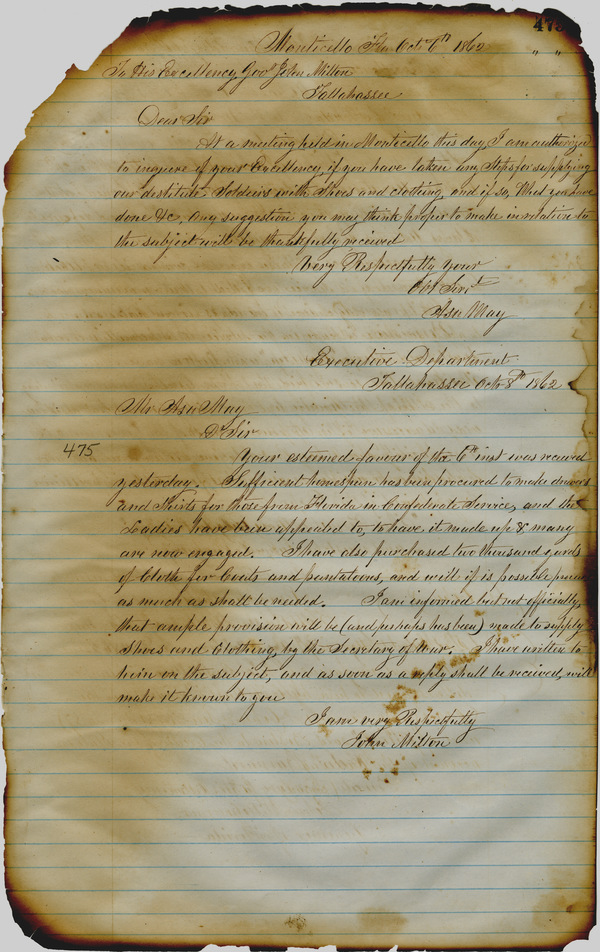 475
Monticello Fla Oct 6th 1862
" "
To His Excellency Govr John Milton
Tallahassee
Dear Sir
At a meeting held in Monticello this day I am authorized
to inquire if your Excellency, if you have taken any Steps for supplying
our destitute Soldiers with Shoes and clothing, and if so, What you have
done &c, any suggestion you may think proper to make in relation to
the subject will be thankfully received
Very Respectfully your
Obt Servt
Asa May
Executive Department
Tallahassee Oct 8th 1862
Mr Asa May
D Sir
475
Your esteemed favour of the 6th inst was received
yesterday. Sufficient homespun has been procured to make drawers
and Shirts for those from Florida in Confederate Service, and the
Ladies have been appealed to, to have it made up & many
are now engaged. I have also purchased two thousand yards
of Cloth for Coats and pantaloons, and will if is possible
as much as shall be needed. I am informed but not officially,
that ample provision will be (and perhaps has been) made to supply
Shoes and Clothing, by the Secretary of War. I have written to
him on the subject, and as soon as a reply shall be received, will
make it known to you
I am very Respectfully
John Milton